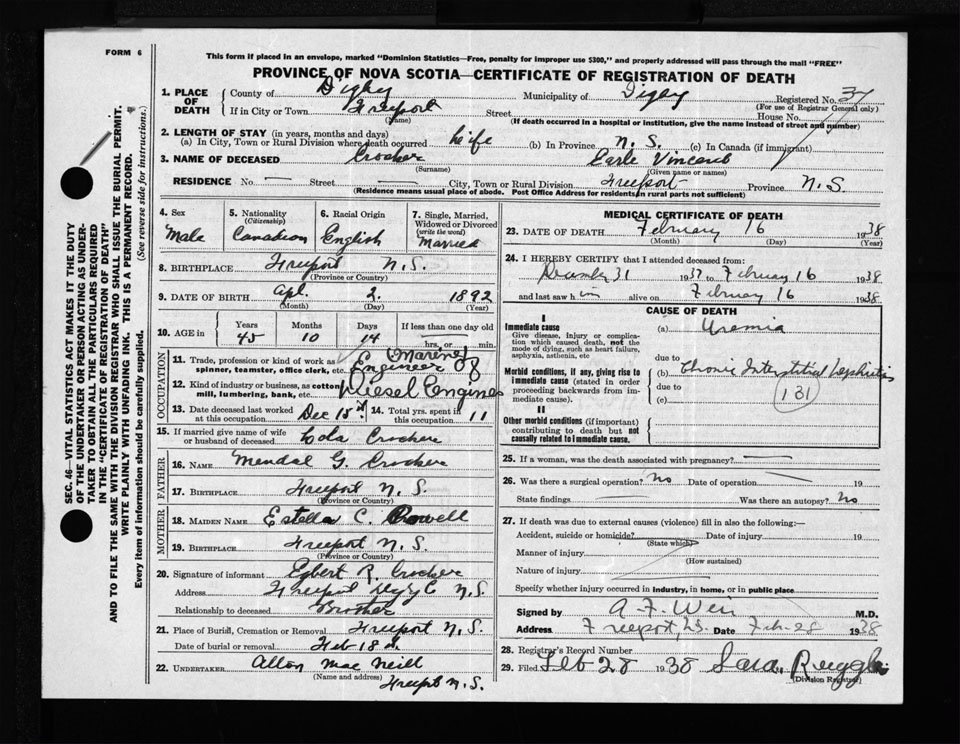 FORM 6
This form if placed in an envelope, marked "Dominion Statistics—Free, penalty for improper use $300," and properly addressed will pass through the mail "FREE"
PROVINCE OF NOVA SCOTIA—CERTIFICATE OF REGISTRATION OF DEATH
1. PLACE OF DEATH
County of Digby Municipality of Digby Registered No. 37
(For use of Registrar General only)
If in City or Town Freeport Street House No.
(Name) (If death occurred in a hospital or institution, give the name instead of street and number)
2. LENGTH OF STAY (in years, months and days)
(a) In City, Town or Rural Division where death occurred life (b) In Province N. S. (c) In Canada (if immigrant)
3. NAME OF DECEASED Crocker Earle Vincent
(Surname) (Given name or names)
RESIDENCE No. — Street — City, Town or Rural Division Freeport Province N. S.
(Residence means usual place of abode. Post Office Address for residents in rural parts not sufficient)
4. Sex
Male
5. Nationality
(Citizenship)
Canadian
6. Racial Origin
English
7. Single, Married, Widowed or Divorced
(write the word)
Married
8. BIRTHPLACE Freeport N. S.
(Province or Country)
9. DATE OF BIRTH Apl. 2. 1892
(Month) (Day) (Year)
10. AGE in
Years Months Days If less than one day old
45 10 14 hrs. or min.
OCCUPATION
11. Trade, profession or kind of work as spinner, teamster, office clerk, etc. (Marine) Engineer of
12. Kind of industry or business, as cotton mill, lumbering, bank, etc. Diesel Engines
13. Date deceased last worked at this occupation Dec 15 14. Total yrs. spent in this occupation 11
15. If married give name of wife or husband of deceased Lola Crocker
FATHER
16. NAME Mendal G. Crocker
17. BIRTHPLACE Freeport N. S.
(Province or Country)
MOTHER
18. MAIDEN NAME Estella C. Powell
19. BIRTHPLACE Freeport N. S.
(Province or Country)
20. Signature of informant Egbert R. Crocker
Address Freeport N. S.
Relationship to deceased Brother
21. Place of Burial, Cremation or Removal Freeport N. S.
Date of burial or removal Feb 18
22. UNDERTAKER Alton Mac Neill
(Name and address) Freeport N. S.
MEDICAL CERTIFICATE OF DEATH
23. DATE OF DEATH February 16 1938
(Month) (Day) (Year)
24. I HEREBY CERTIFY that I attended deceased from:
December 31 1937 to February 16 1938
and last saw him alive on February 16 1938
CAUSE OF DEATH
I
Immediate cause
Give disease, injury or complication which caused death, not the mode of dying, such as heart failure, asphyxia, asthenia, etc
(a) Uremia
due to
Morbid conditions, if any, giving rise to immediate cause (stated in order proceeding backwards from immediate cause).
(b) Chronic Interstitial Nephritis
due to
(c)
131
II
Other morbid conditions (if important) contributing to death but not causally related to immediate cause.
25. If a woman, was the death associated with pregnancy? —
26. Was there a surgical operation? No Date of operation — 19
State findings — Was there an autopsy? No
27. If death was due to external causes (violence) fill in also the following:—
Accident, suicide or homicide? Date of injury 19
(State which)
Manner of injury
(How sustained)
Nature of injury
Specify whether injury occurred in industry, in home, or in public place
Signed by A. F. M.D.
Address Freeport, N.S. Date Feb - 28 1938
28. Registrar's Record Number
29. Filed Feb 28 1938 Sara Ruggles
(Division Registrar)
SEC. 46—VITAL STATISTICS ACT MAKES IT THE DUTY
OF THE UNDERTAKER OR PERSON ACTING AS UNDER-
TAKER TO OBTAIN ALL THE PARTICULARS REQUIRED
IN THE "CERTIFICATE OF REGISTRATION OF DEATH"
AND TO FILE THE SAME WITH THE DIVISION REGISTRAR WHO SHALL ISSUE THE BURIAL PERMIT.
WRITE PLAINLY WITH UNFADING INK. THIS IS A PERMANENT RECORD.
Every item of information should be carefully supplied. (See reverse side for instructions.)